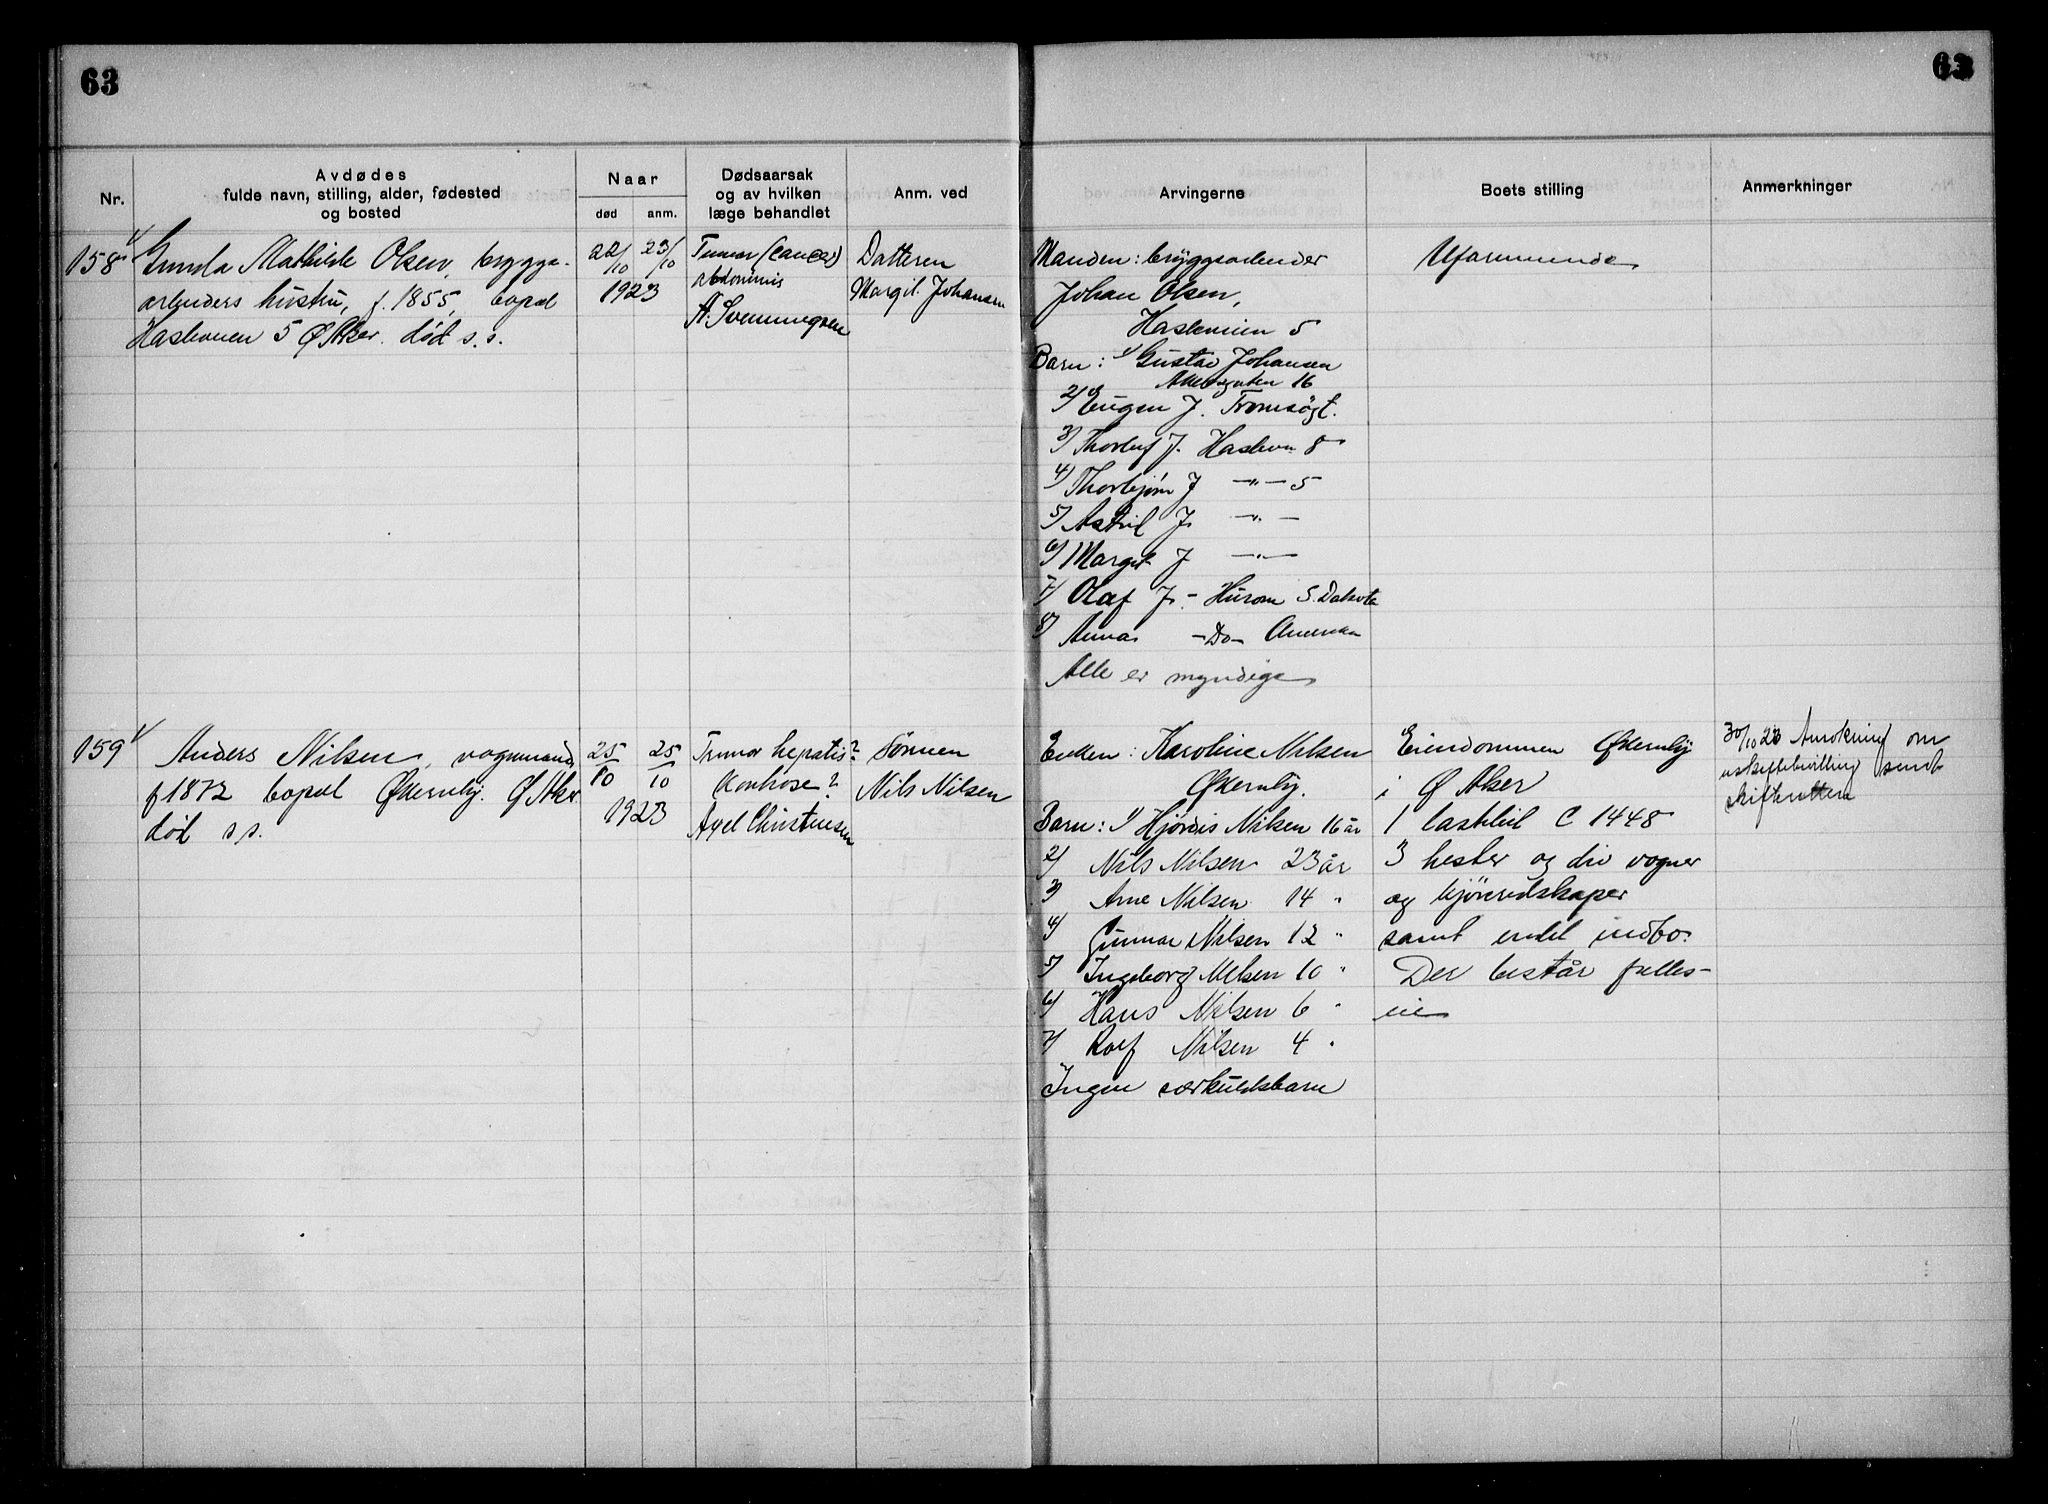 63
63
Nr.
Avdødes
fulde navn, stilling, alder, fødested
og bosted
Naar
død
anm.
Dødsaarsak
og av hvilken
læge behandlet
Anm. ved
Arvingerne
Boets stilling
Anmerkninger
158
Gunda Mathilde Olsen, brygge-
arbeiders hustru, f. 1855, bopæl
Hasleveien 5 Ø Aker. død s.s.
22/10 23/10
1923
Tumor (cancer)
abdominis
A. Svenningsen
Datteren
Margit Johansen
Manden: bryggearbeider
Johan Olsen,
Hasleveien 5
Barn: 1/ Gustav Johansen
Akersgaten 16
2/ Eugen J. Tromsøgt.
3/ Thorleif J. Haslevn 8
4/ Thorbjørn J —"— 5
5/ Astrid J. —"—
6/ Margit J —"—
7/ Olaf J. - Huron S. Dakota
8/ Anna —Do— Amerika
Alle er myndige
Uformuende
159
Anders Nilsen, vognmand,
f 1872 bopæl Økernby. Ø Aker
død s s.
25/10 25/10
1923
Tumor hepatis?
Axel Christensen
Sønnen
Nils Nilsen
Enken: Karoline Nilsen
Økernby.
Barn: 1/ Hjørdis Nilsen 16 år
2/ Nils Nilsen 23 år
3/ Arne Nilsen 14 "
4/ Gunnar Nilsen 12 "
5/ Ingeborg Nilsen 10 "
6/ Hans Nilsen 6 "
7/ Rolf Nilsen 4 "
Ingen særkuldsbarn
Eiendommen Økernby
i Ø Aker
1 lastebil C 1448
3 hester og div vogner
og kjøreredskaper
samt endel indbo.
Der består felles-
eie
30/10 23 Ansøkning om
uskiftebevilling sendt
skifteretten